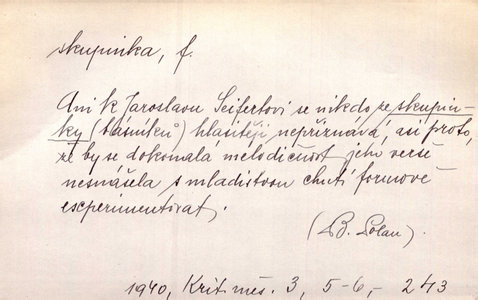 skupinka, f.
Ani k Jaroslavu Seifertovi se nikdo ze skupin-
ky (básníků) hlasitěji nepřiznává, asi proto,
že by se dokonalá melodičnost jeho verše
nesnášela s mladistvou chutí formově
experimentovat.
(B. Polan).
1940, Krit. měs. 3, 5-6,- 243